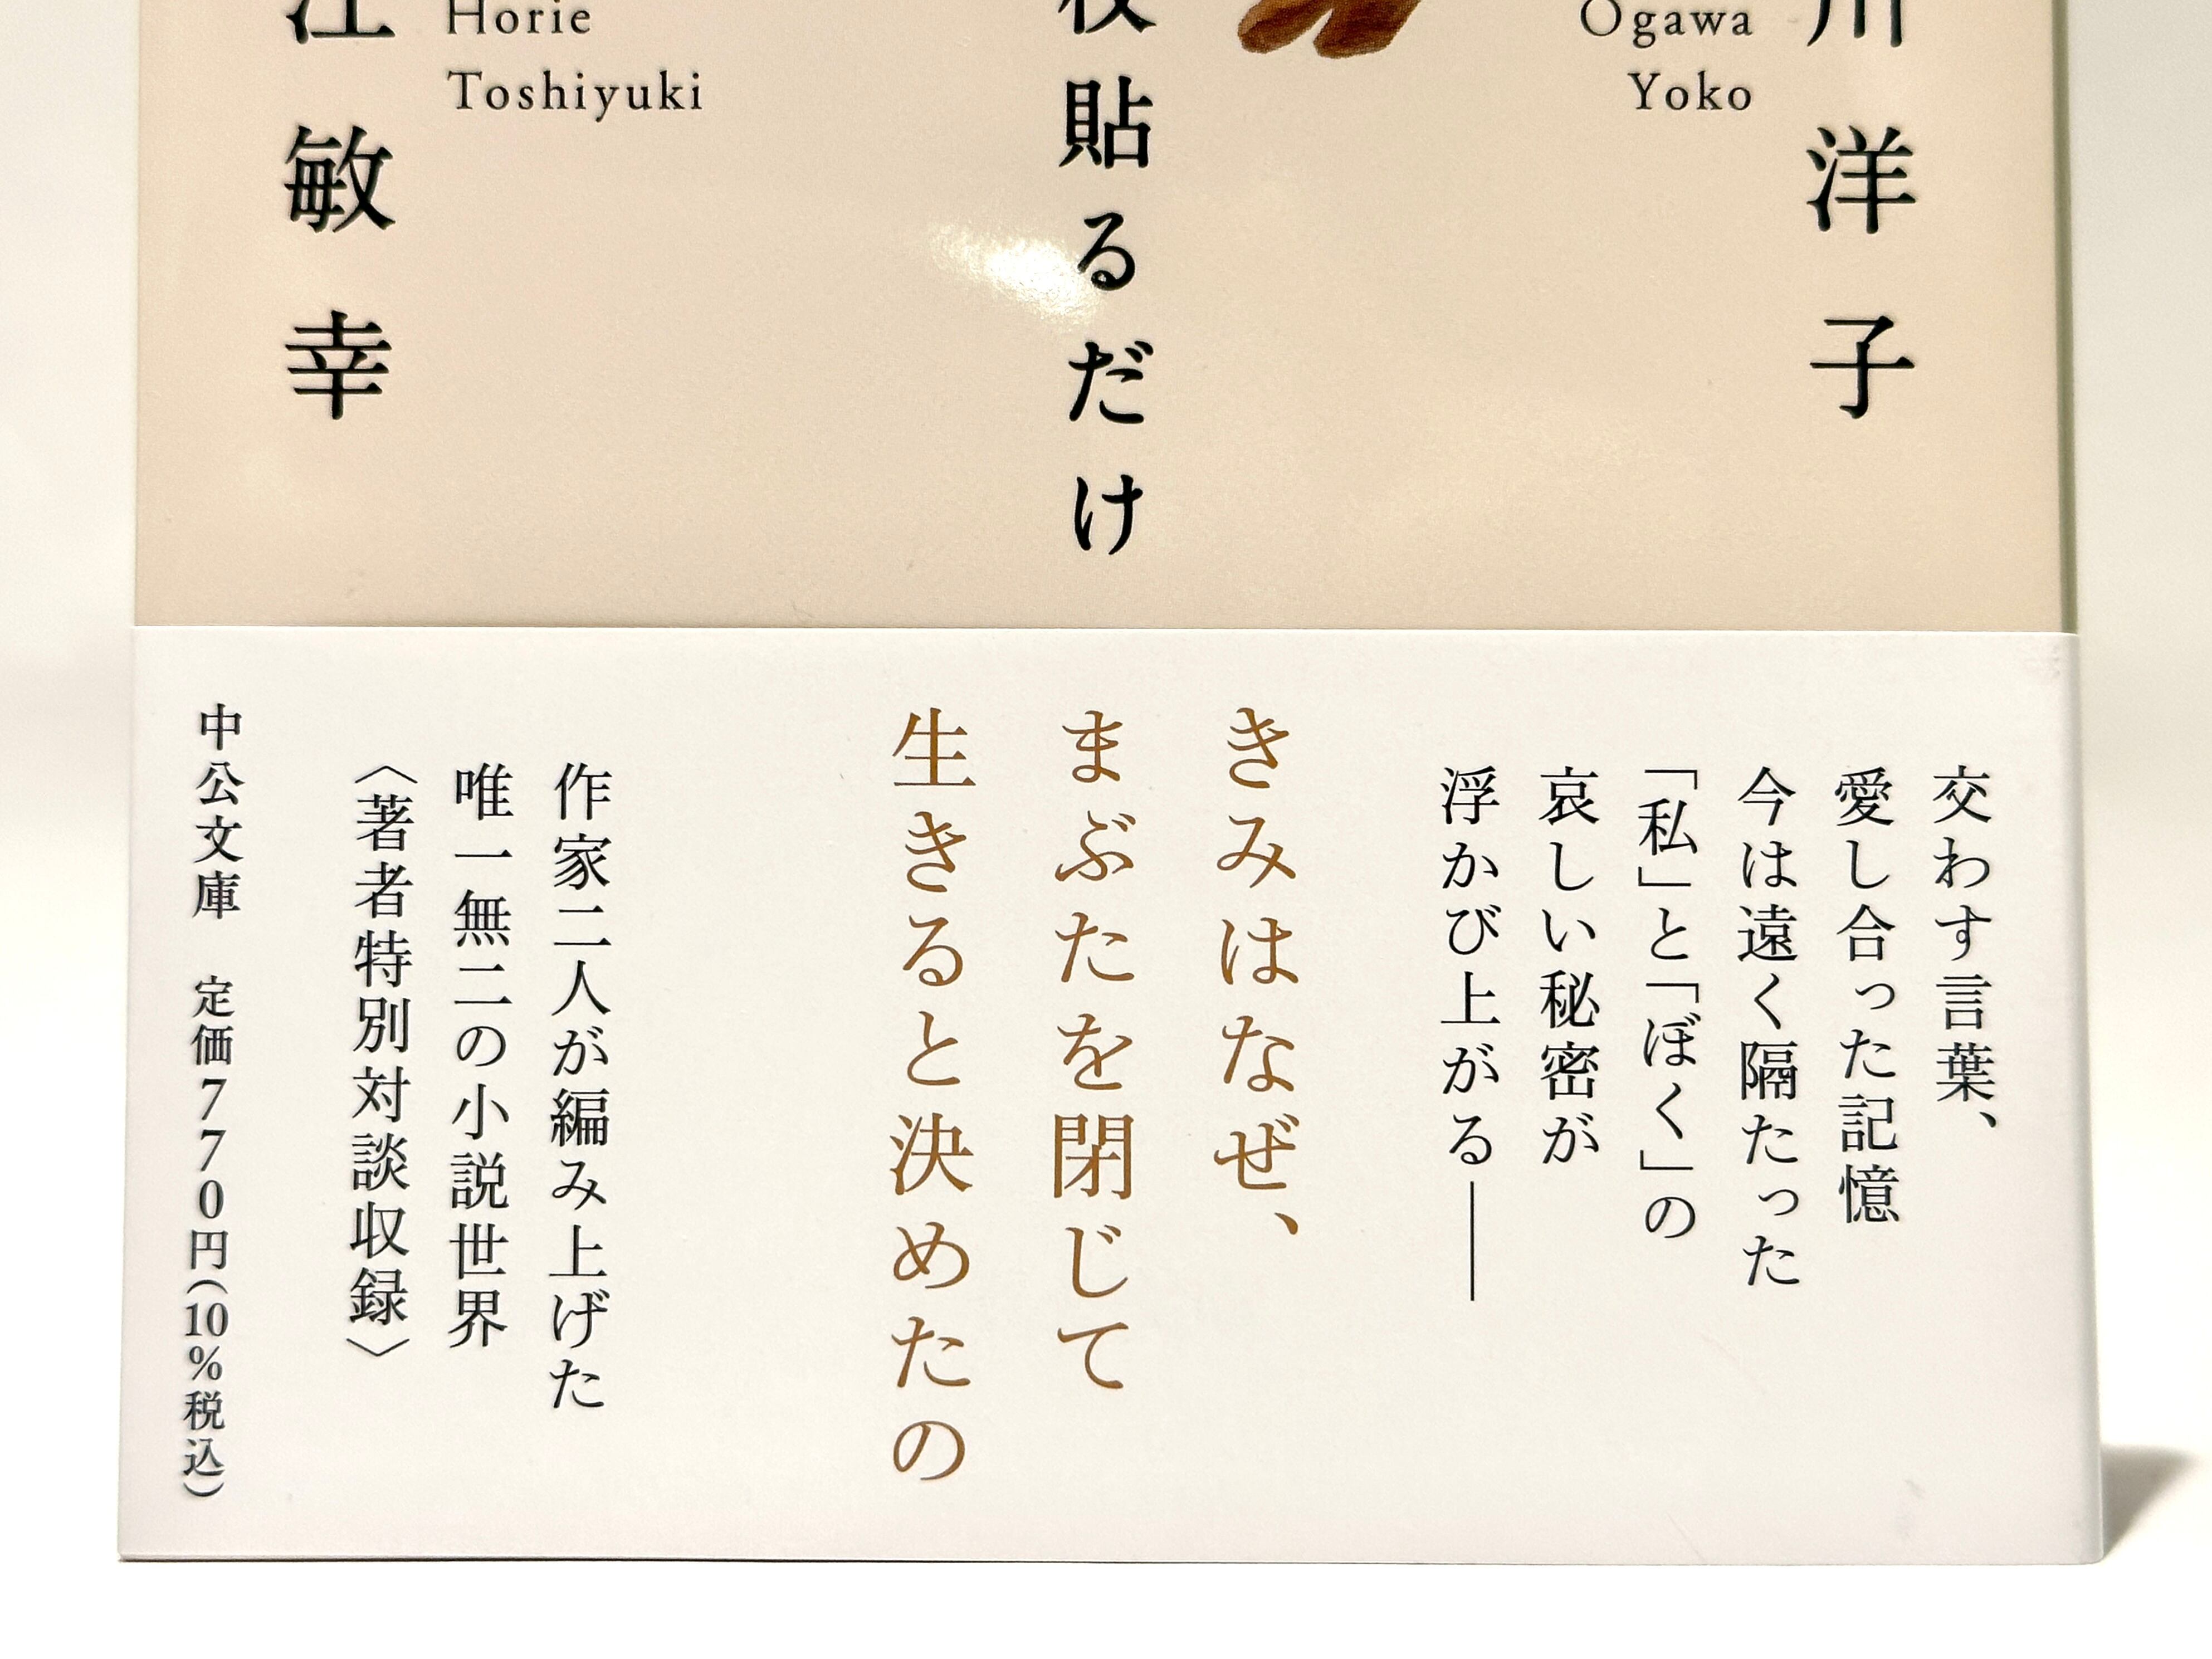 川洋子
Ogawa
Yoko
枚貼るだけ
江敏幸
Horie
Toshiyuki
交わす言葉、
愛し合った記憶
今は遠く隔たった
「私」と「ぼく」の
哀しい秘密が
浮かび上がる――
きみはなぜ、
まぶたを閉じて
生きると決めたの
作家二人が編み上げた
唯一無二の小説世界
〈著者特別対談収録〉
中公文庫　定価770円(10%税込)